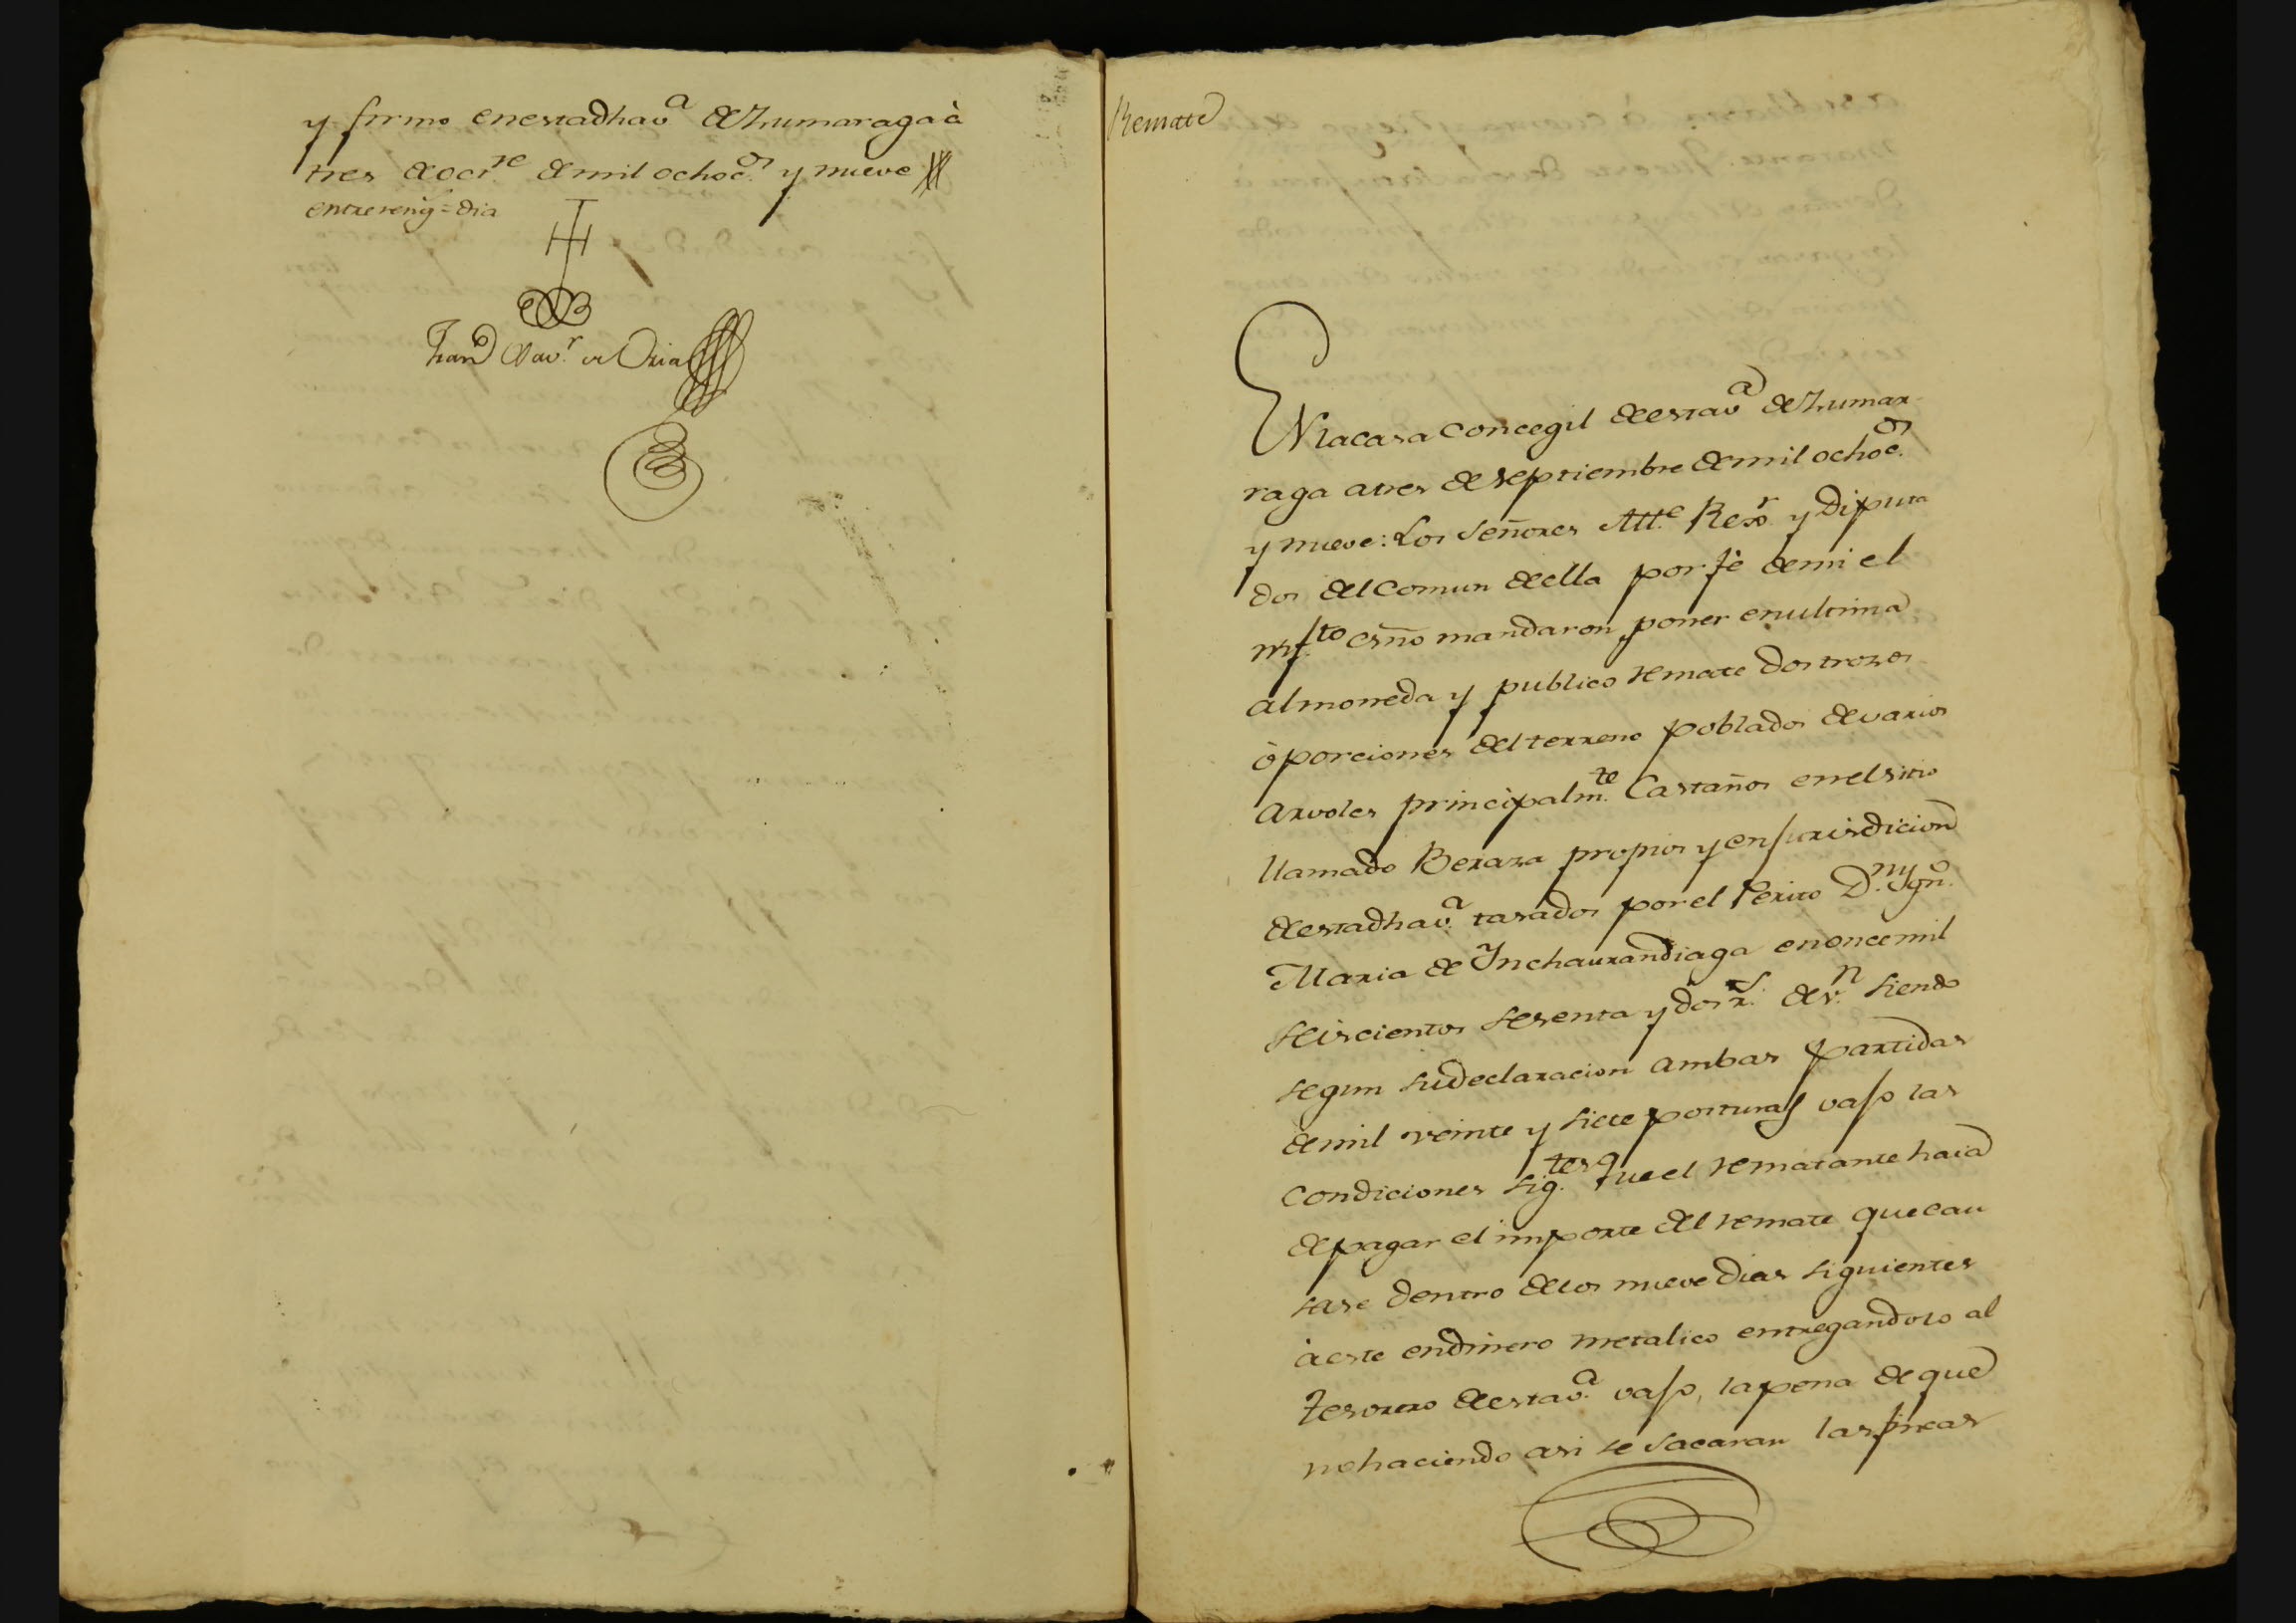 y firmo en esta dha v.a de Zumaraga à
tres de oct.re de mil ochoc.os y nueve
entrereng = dia
Fran.co Xav.r de Oria
Remate
En la casa Concegil de esta v.a de Zumar
raga a tres de septiembre de mil ochoc.os
y nueve: Los Señores Alt.e Rexor y Diputa
dos del Comun de ella por fe de mi el
infr.to esño mandaron poner en ultima
almoneda y publico remate dos trozos
ò porciones del terreno poblados de varios
arvoles principalm.te Castaños en el sitio
llamado Beraza propios y en jurisdicion
de esta dha v.a tasados por el Perito D.n Ygn.o
Maria de Ynchaurandiaga en once mil
seiscientos sesenta y dos r.s de v.n siendo
segun su declaracion ambas partidas
de mil veinte y siete posturas vajo las
condiciones sig.tes Que el rematante haia
de pagar el importe del remate que cau
sase dentro de los nueve dias siguientes
à este en dinero metalico entregandolo al
tesorero de esta v.a vajo, la pena de que
no haciendo asi se sacaran las fincas